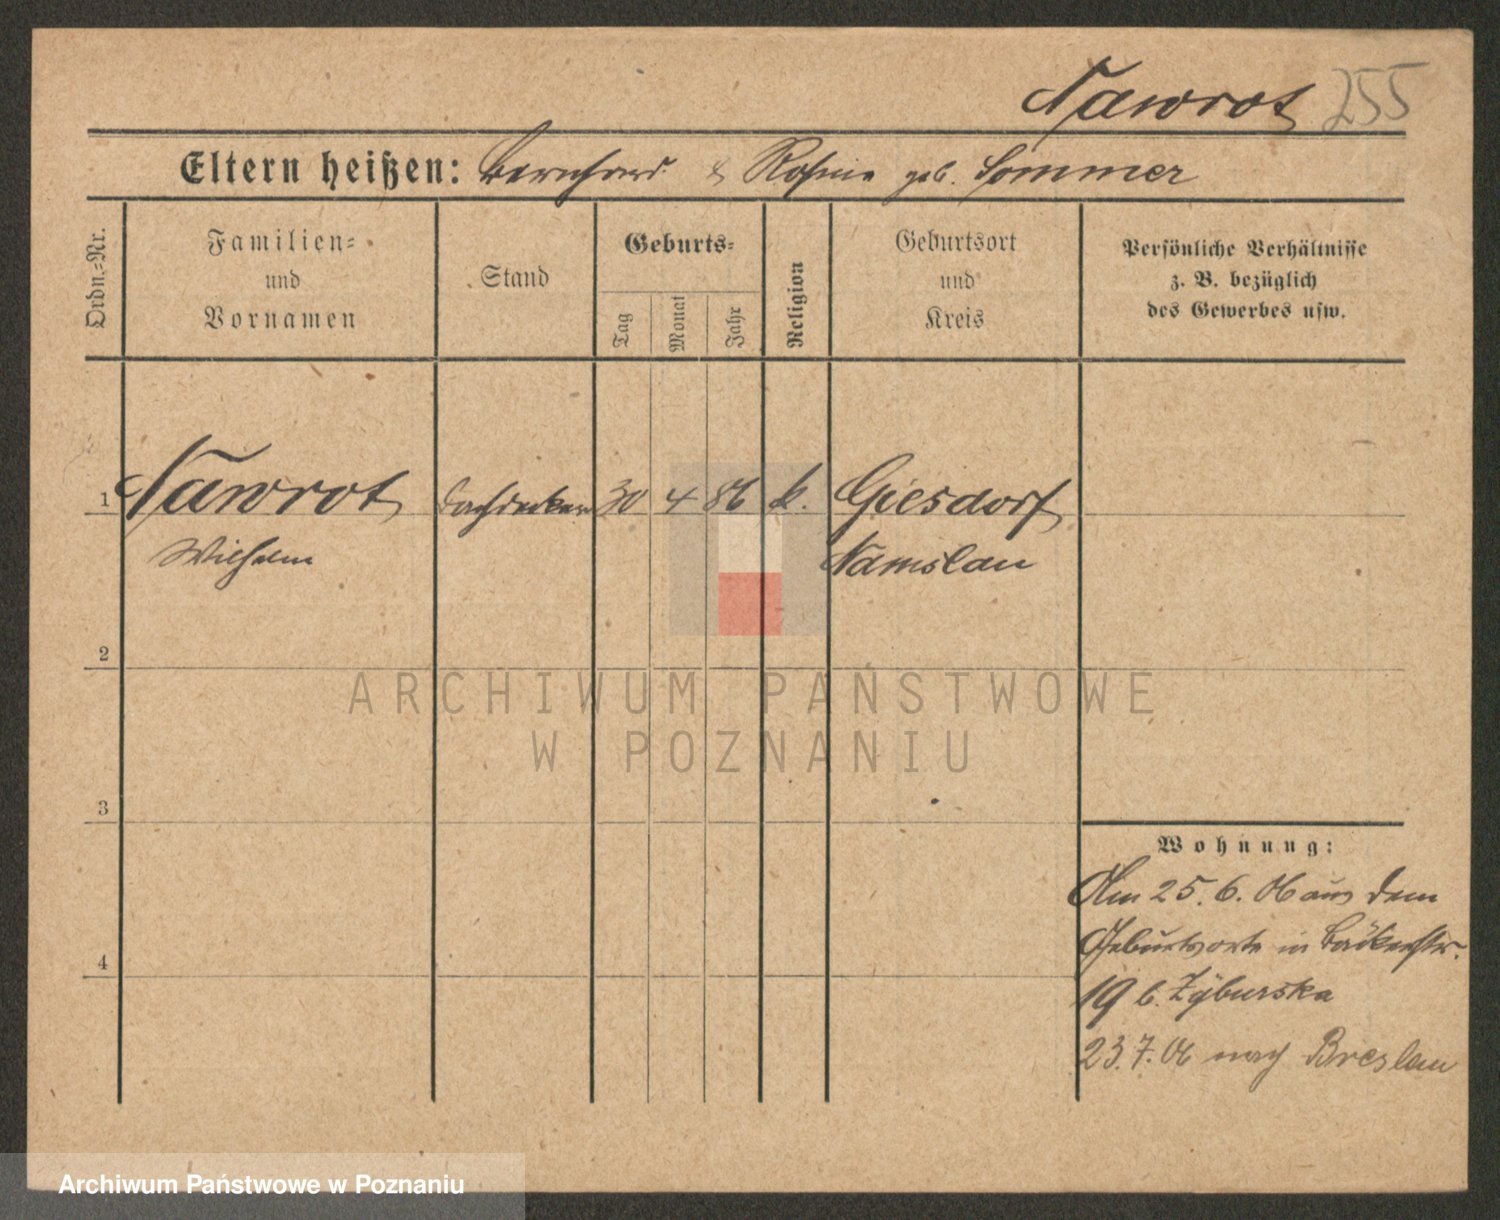 Nawrot 255
Eltern heißen: Bernhard & Rosina geb. Sommer
Ordn.-Nr.
Familien-
und
Vornamen
Stand
Geburts-
Tag
Monat
Jahr
Religion
Geburtsort
und
Kreis
Persönliche Verhältnisse
z. B. bezüglich
des Gewerbes usw.
1 Nawrot Dachdecker 30 4 86 k. Giesdorf
Wilhelm Namslau
2
3
4
Wohnung:
Am 25. 6. 06 aus dem
Geburtsorte in Bäckerstr.
19 b. Zyburska
23.7.06 nach Breslau
ARCHIWUM PAŃSTWOWE
W POZNANIU
Archiwum Państwowe w Poznaniu